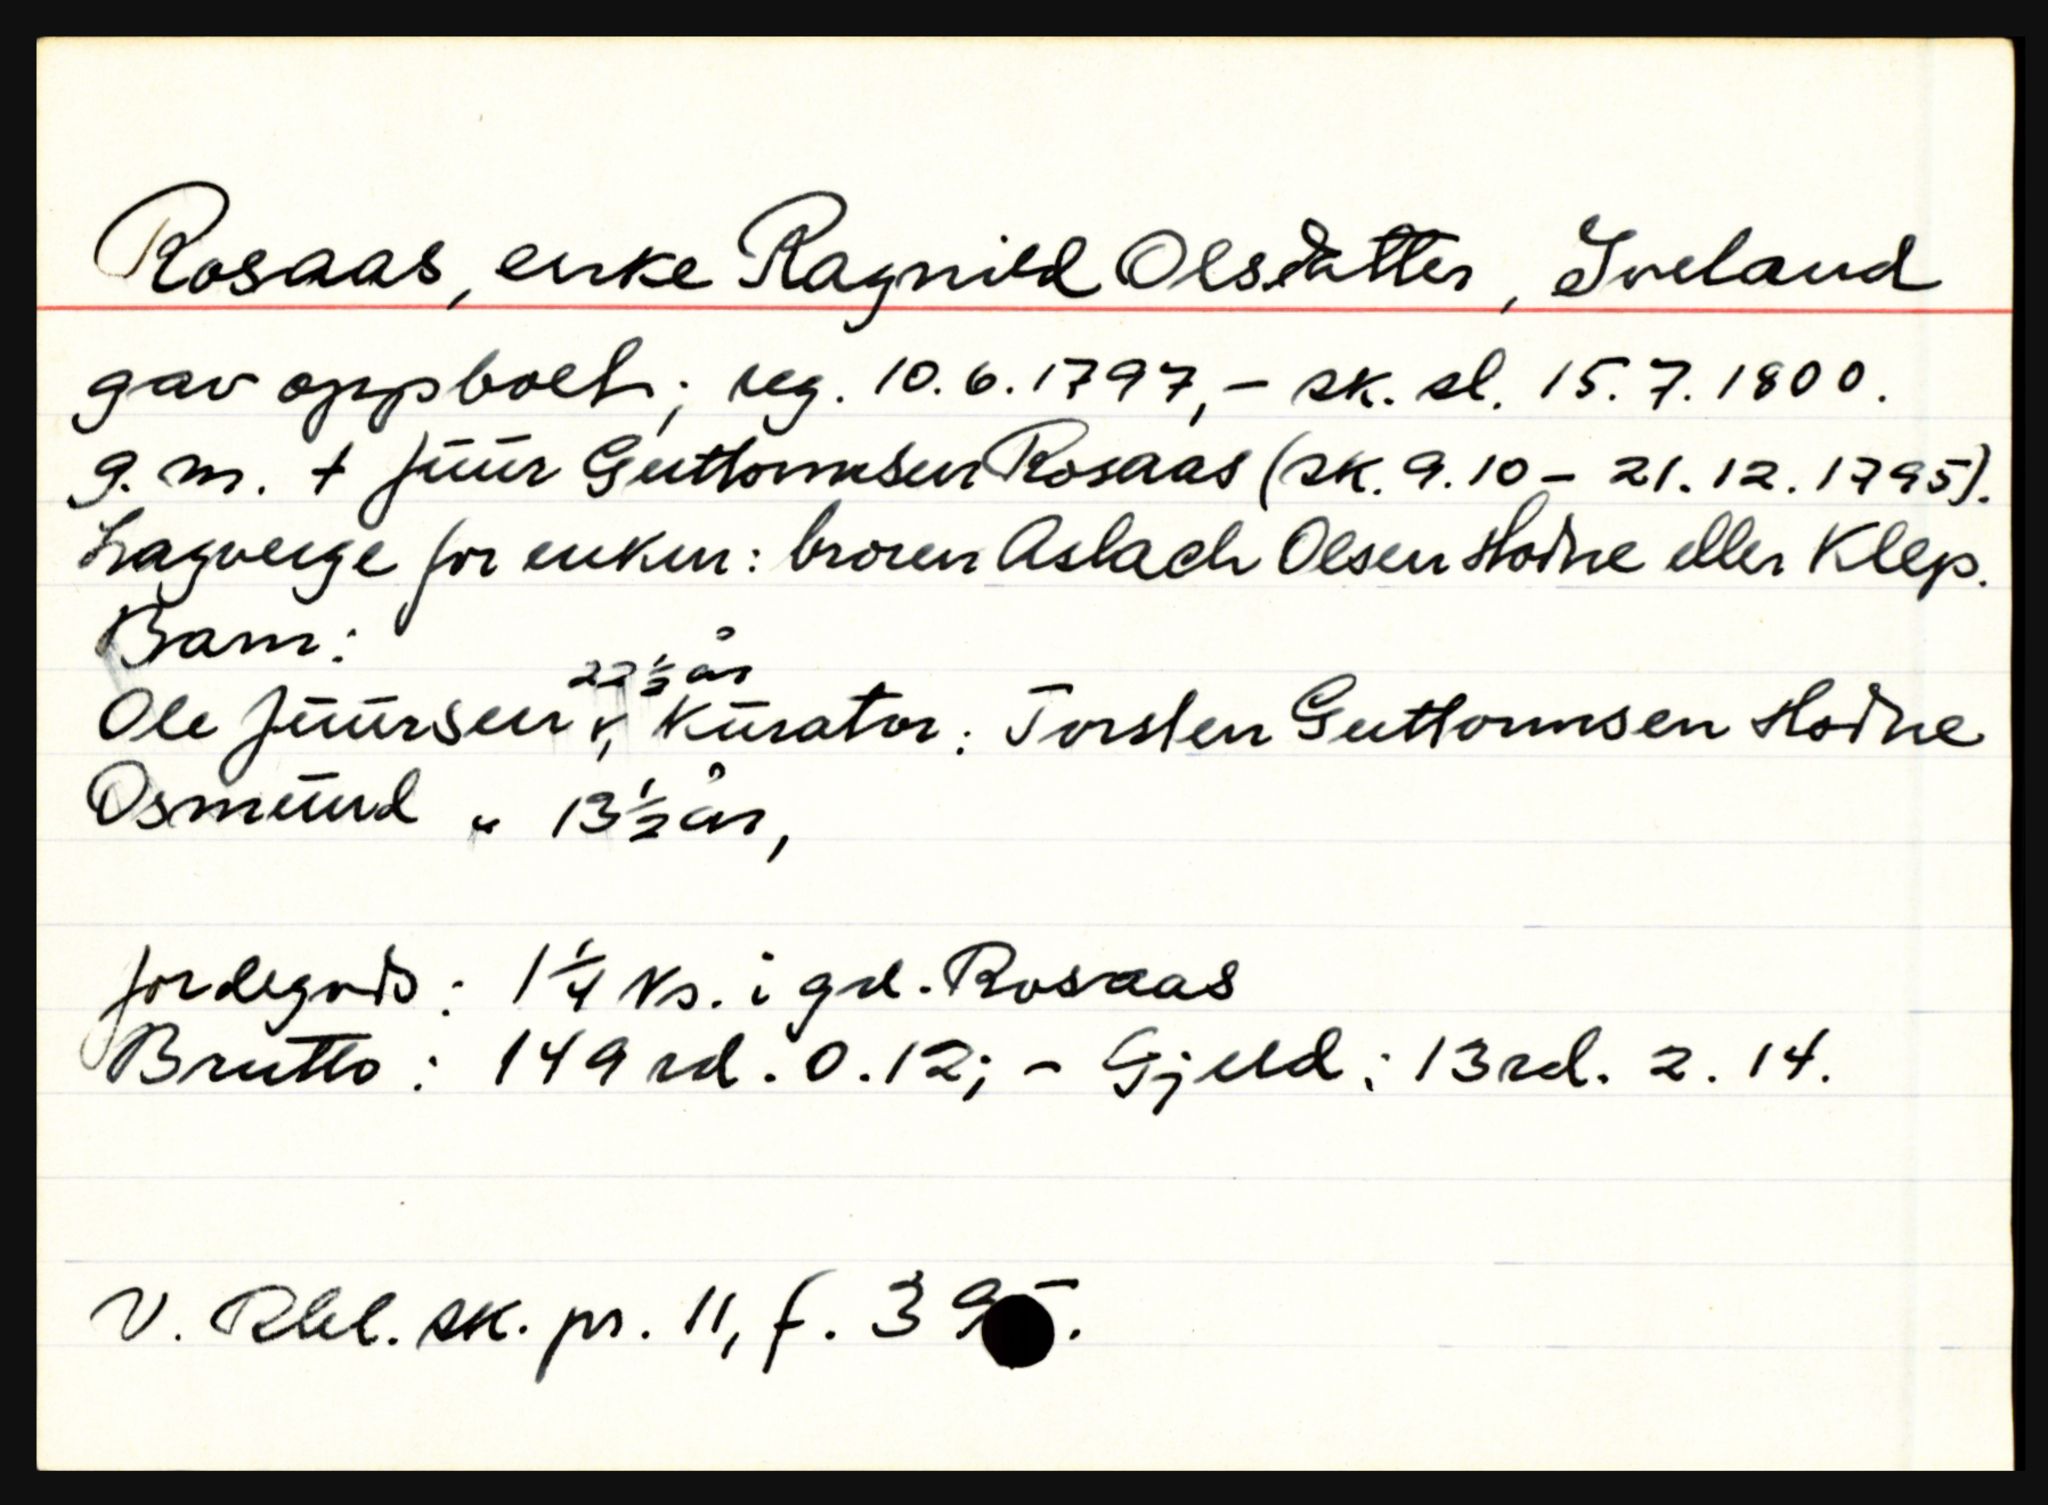 Rosaas, enke Ragnild Olsdatter, Iveland
gav opp boet; reg. 10.6.1797,- sk. sl. 15.7.1800.
g. m. + Juur Guttormsen Rosaas (sk. 9.10 - 21.12.1795).
Lagverge for enken: broren Aslach Olsen Hodne eller Klep.
Barn:
Ole Juursen 22 1/2 år, Kurator: Torsten Guttormsen Hodne
Osmund " 13 1/2 år,
Jordegods: 1 1/4 ks. i grd. Rosaas
Brutto: 149 rd. 0.12; - Gjeld: 13 rd. 2. 14.
V. Rbl. sk. pr. 11, f. 395.